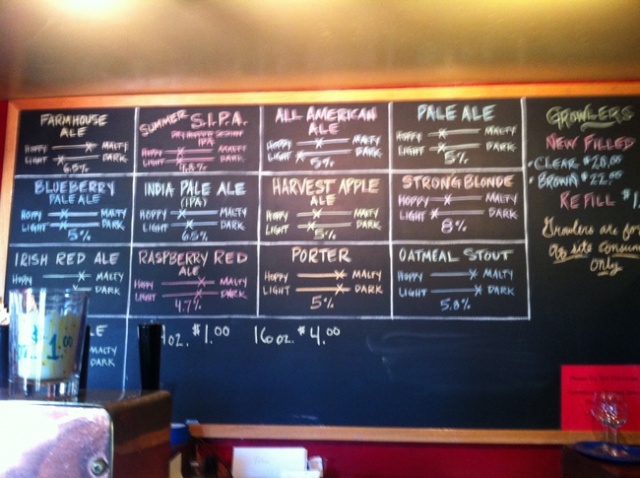 FARMHOUSE
ALE
HOPPY MALTY
LIGHT DARK
6.5%
SUMMER S.I.P.A.
DRY HOPPED SESSION
IPA
HOPPY MALTY
LIGHT DARK
4.8%
ALL AMERICAN
ALE
HOPPY MALTY
LIGHT DARK
5%
PALE ALE
HOPPY MALTY
LIGHT DARK
5%
BLUEBERRY
PALE ALE
HOPPY MALTY
LIGHT DARK
5%
INDIA PALE ALE
(IPA)
HOPPY MALTY
LIGHT DARK
6.5%
HARVEST APPLE
ALE
HOPPY MALTY
LIGHT DARK
5%
STRONG BLONDE
HOPPY MALTY
LIGHT DARK
8%
IRISH RED ALE
HOPPY MALTY
DARK
RASPBERRY RED
ALE
HOPPY MALTY
LIGHT DARK
4.7%
PORTER
HOPPY MALTY
LIGHT DARK
5%
OATMEAL STOUT
HOPPY MALTY
LIGHT DARK
5.8%
MALTY
DARK
oz. $1.00 16oz. $4.00
GROWLERS
NEW FILLED
• CLEAR $20.00
• BROWN $22.00
REFILL
Growlers are for
off site
only
$1.00